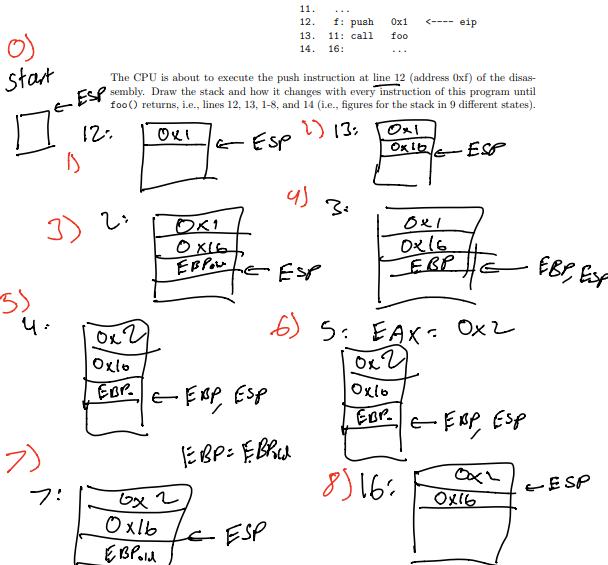 11. ...
12. f: push 0x1 <---- eip
13. 11: call foo
14. 16: ...
0)
start
The CPU is about to execute the push instruction at line 12 (address 0xf) of the disas-
sembly. Draw the stack and how it changes with every instruction of this program until
foo() returns, i.e., lines 12, 13, 1-8, and 14 (i.e., figures for the stack in 9 different states).
← ESP
1)
12:
0x1
← ESP
2) 13:
0x1
0x16
← ESP
3) 2:
0x1
0x16
EBPold
← ESP
4) 3:
0x1
0x16
EBP
← EBP, ESP
5)
4:
0x2
0x16
EBP
← EBP, ESP
6) 5: EAX = 0x2
0x2
0x16
EBP
← EBP, ESP
7)
EBP = EBPold
7:
0x2
0x16
EBPold
← ESP
8) 16:
0x2
0x16
← ESP